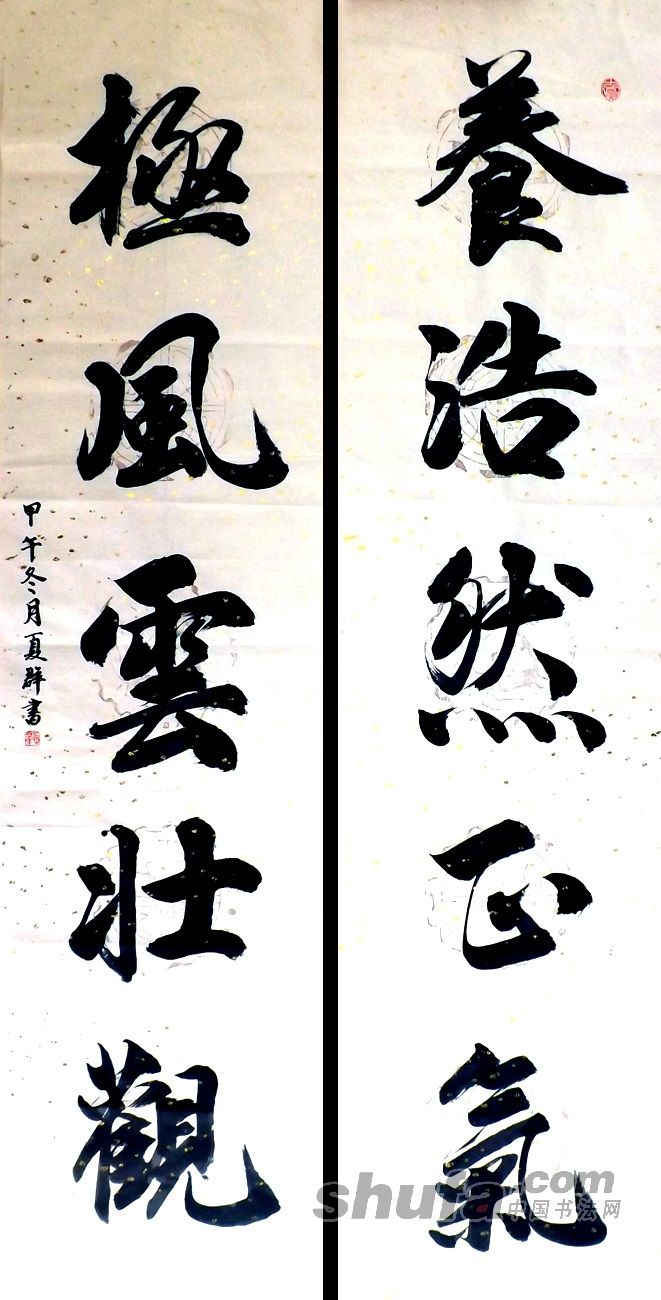 養浩然正氣
極風雲壯觀
甲午冬月夏群書
shufa.com
中国书法网